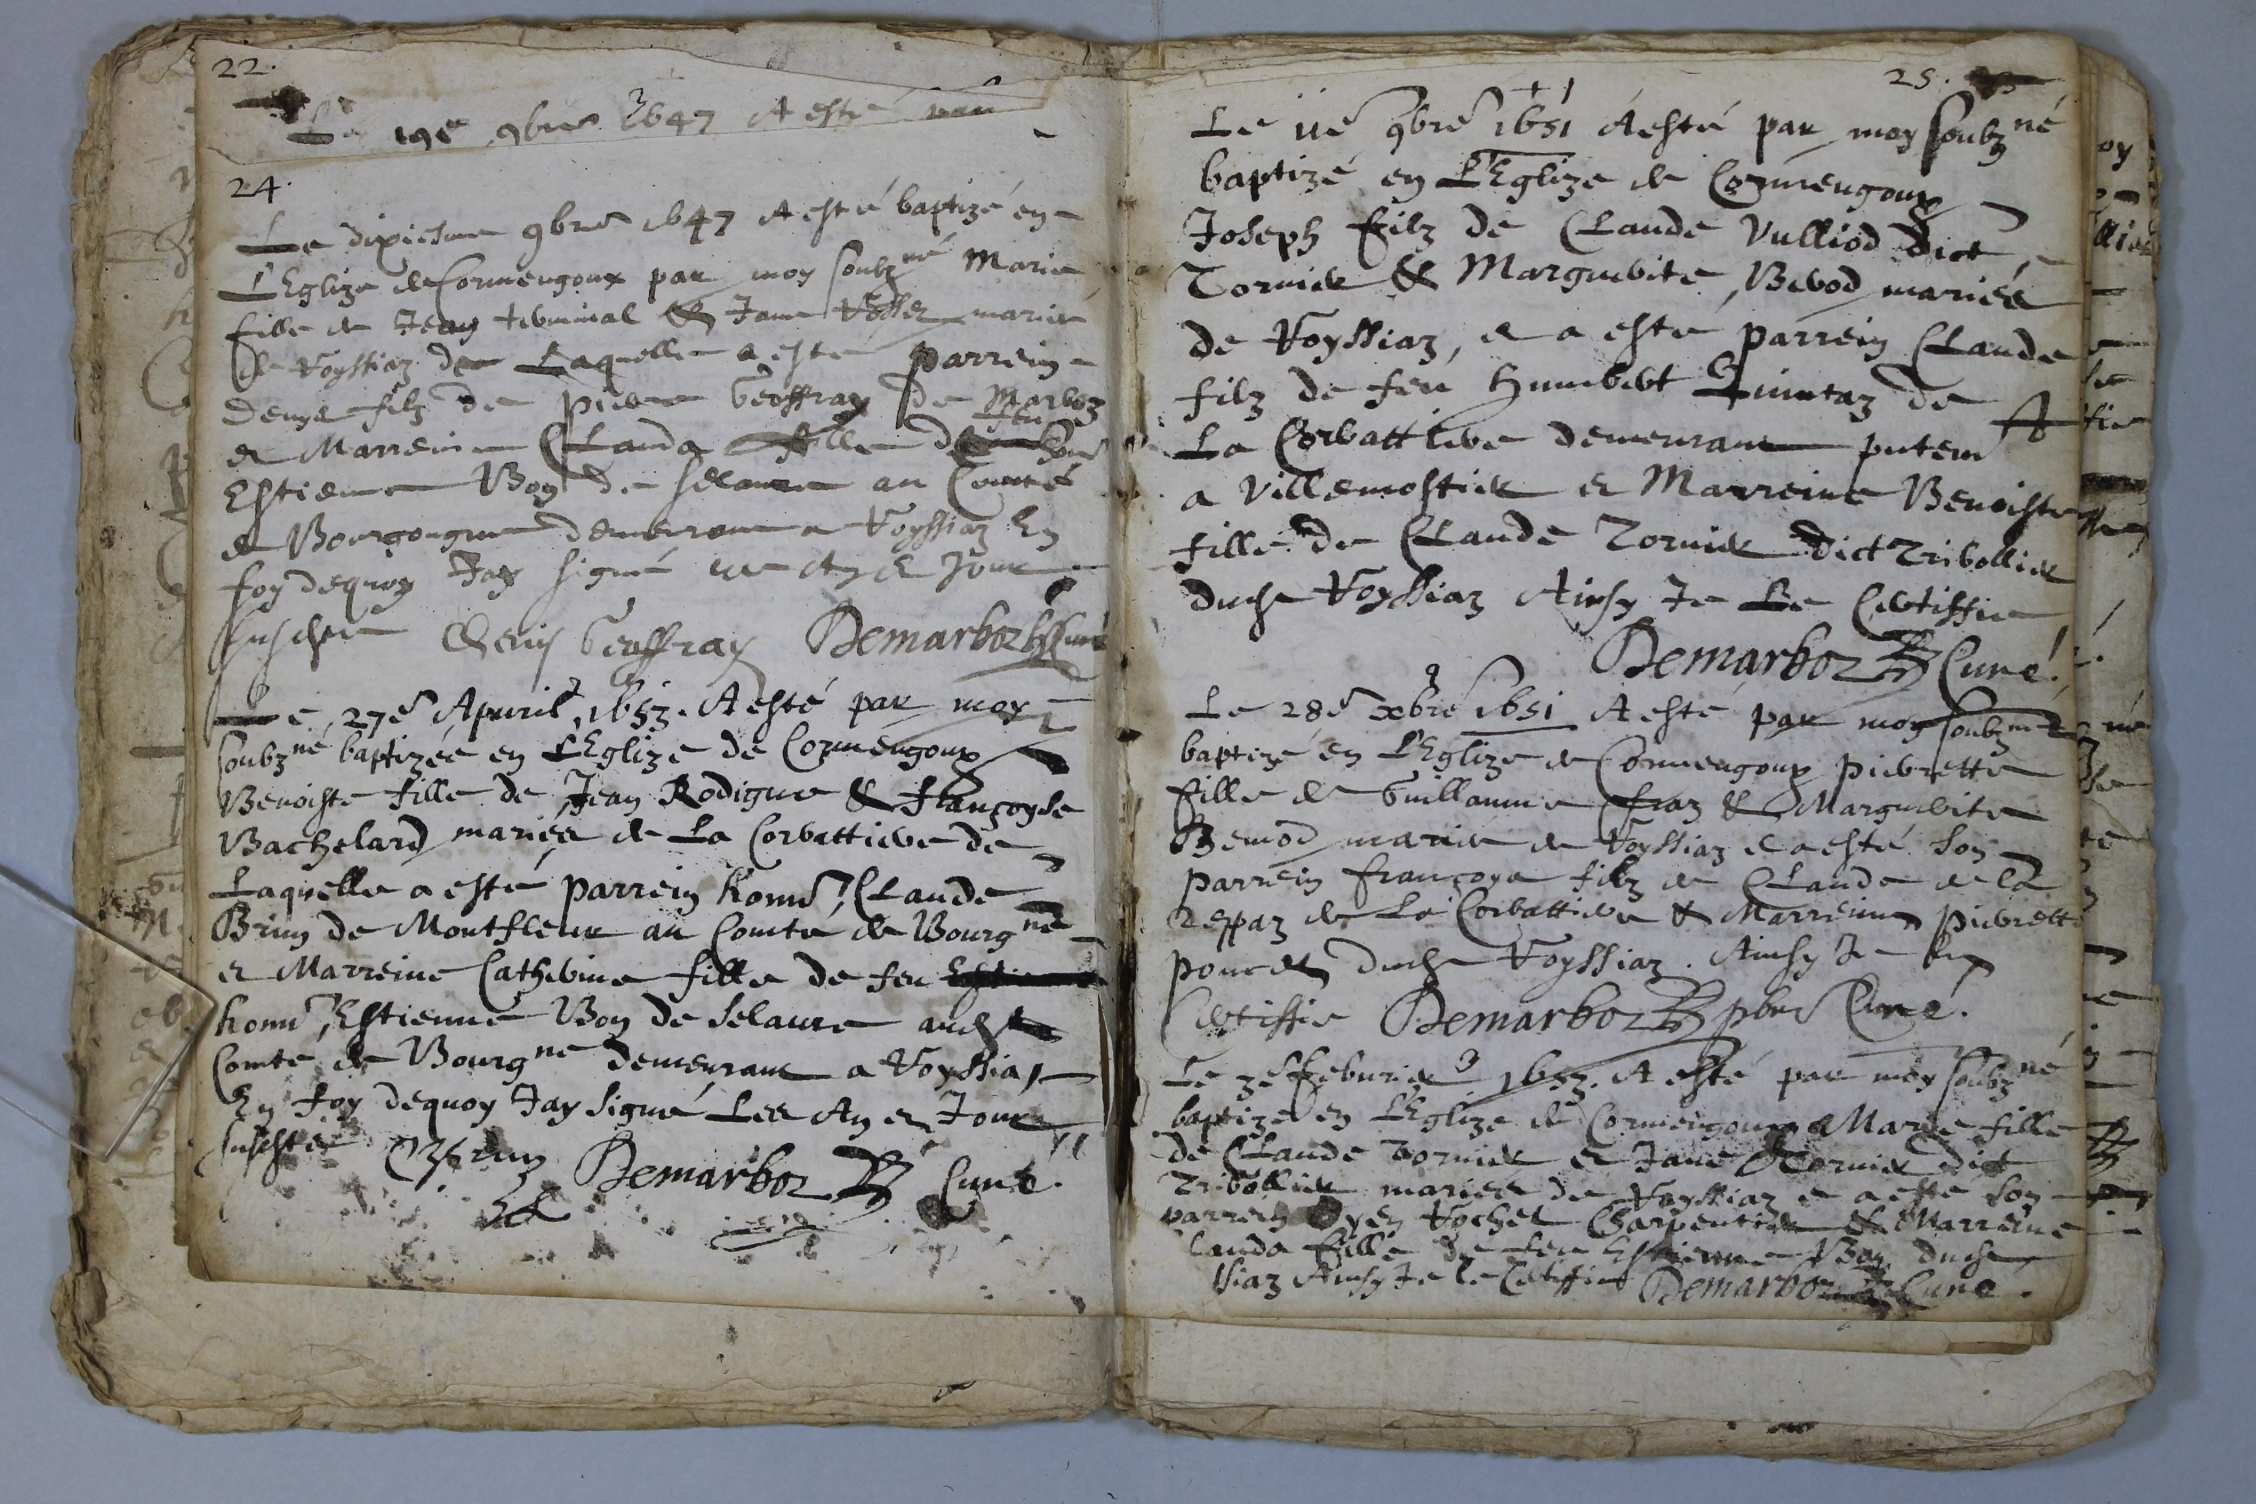 22.
Le 19e 9bre 1647 A esté par
24.
Le dixiesme 9bre 1647 A esté baptizé en
L'Eglize de Cormengoux par moy soubzné Marie
fille de Jean & Jane mariés
de Voyssiaz de Laquelle a esté parrein
Denys filz de Pierre Geoffray de Marboz
feu
et Marreine Clauda fille de
Estienne Bon de Selaure au Comté
de Bourgongne demeurant a Voyssiaz En
foy dequoy Jay signé Les An et Jour
susdits Denis Geoffray Demarboz Curé
Le 27e Apvril 1653. A esté par moy
soubzné baptizée en L'Eglize de Cormengoux
Benoiste fille de Jean Rodigue & Françoyse
Bachelard mariés de La Corbattiere de
Laquelle a esté parrein honn. Claude
Brun de Montfleur au Comté de Bourgne
et Marreine Catherine fille de feu
honn. Estienne Bon de Selaure aud.
Comte de Bourgne demeurant a Voyssiaz
En foy dequoy Jay signé Les An et Jour
susdits C Brun Demarboz Curé.
25.
Le 11e 9bre 1651 A esté par moy soubzné
baptizé en L'Eglize de Cormengoux
Joseph filz de Claude Vulliod dict
Tornier & Marguerite Berod mariés
de Voyssiaz, et a esté parrein Claude
filz de feu Humbert Quintaz de
La Corbattiere demeurant
a Villemostier et Marreine Benoiste
fille de Claude Tornier dict Tribollier
dudt Voyssiaz Ainsy Je Le Certiffie
Demarboz Curé.
Le 28e xbre 1651 A esté par moy soubzné
baptizé en L'Eglize de Cormengoux Pierrette
fille de Guillaume & Marguerite
mariés de Voyssiaz et a esté son
parrein Françoys filz de Claude de la
de La Corbattiere & Marreine Pierrette
Poncet dudt Voyssiaz. Ainsy Je Le
Certiffie Demarboz pbre Curé.
Le 3e Febvrier 1653. A esté par moy soubzné
baptize en L'Eglize de Cormengoux Marie fille
de Claude Tornier et Jane Tornier dict
Tribollier mariés de Voyssiaz et a esté son
parrein Oyen Vochet Charpentier & Marreine
lauda fille de feu Estienne Bon dudt
ssiaz Ainsy Je le Certiffie Demarboz Curé.